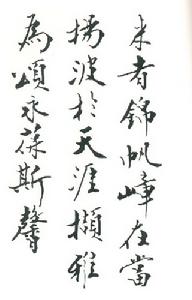 来者錦帆嶂在當
揚波於天涯擷雅
為頌永葆斯馨